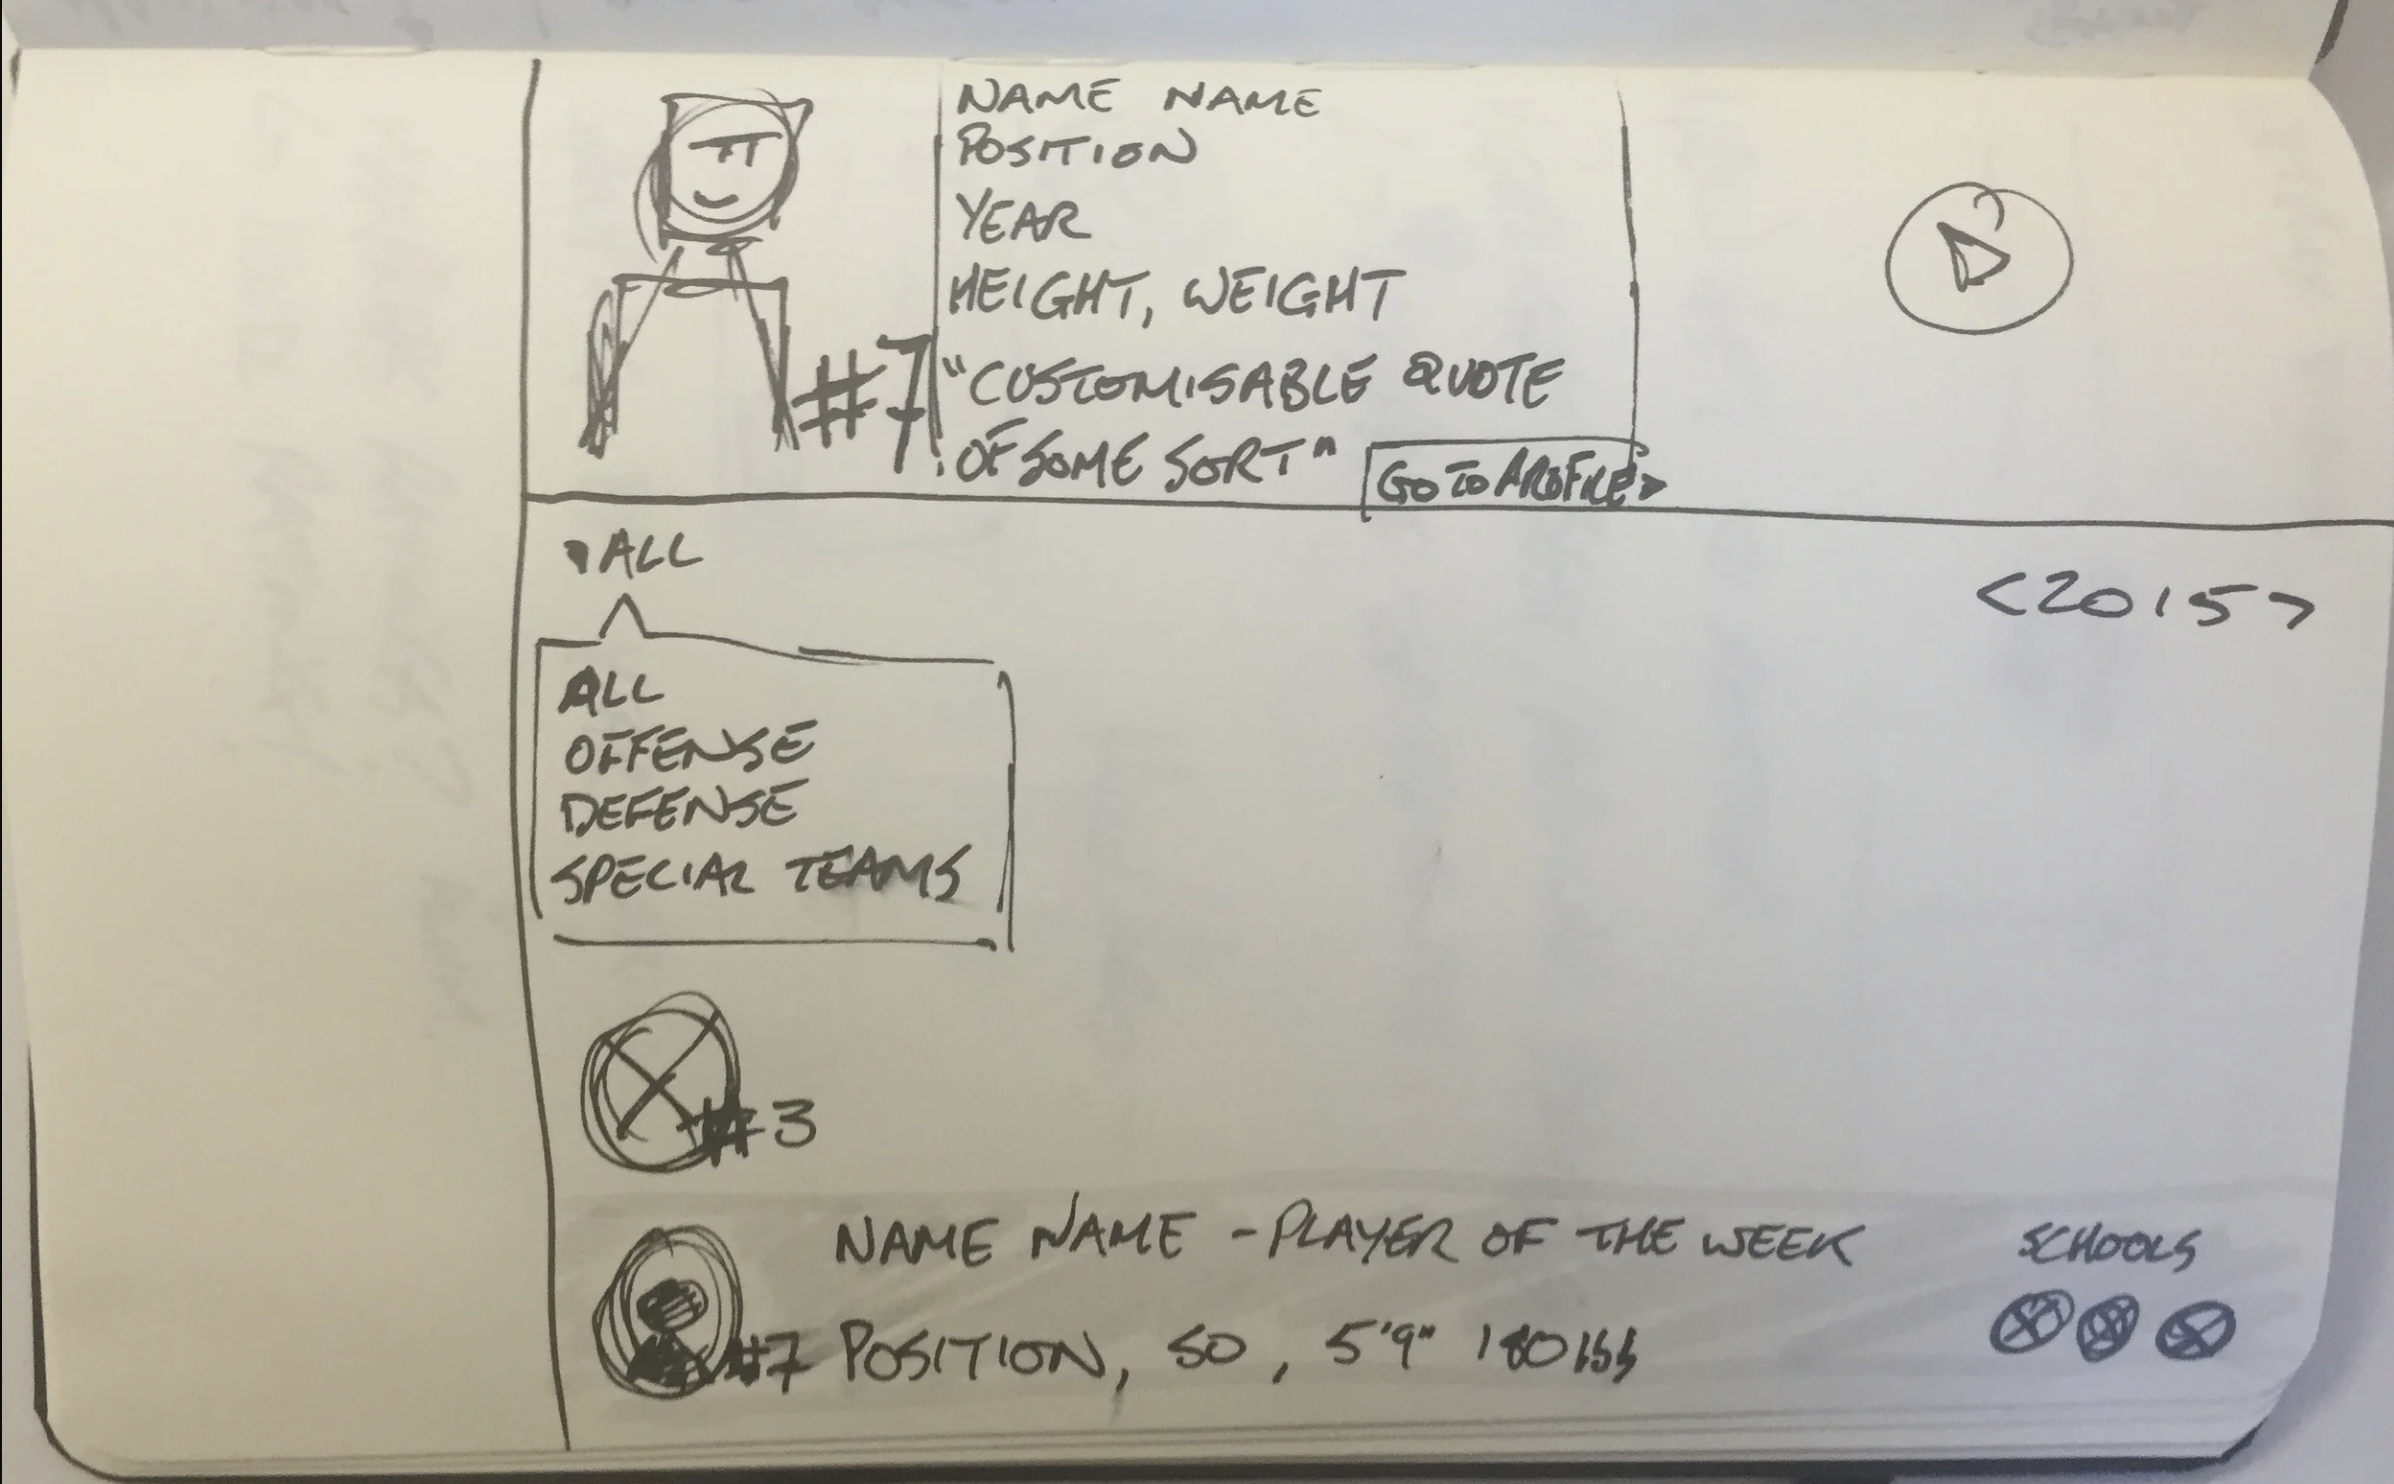 NAME NAME
POSITION
YEAR
HEIGHT, WEIGHT
#7
"CUSTOMISABLE QUOTE
OF SOME SORT"
GO TO PROFILE >
ALL
<2015>
ALL
OFFENSE
DEFENSE
SPECIAL TEAMS
#3
NAME NAME - PLAYER OF THE WEEK
SCHOOLS
#7 POSITION, SO, 5'9" 180lbs